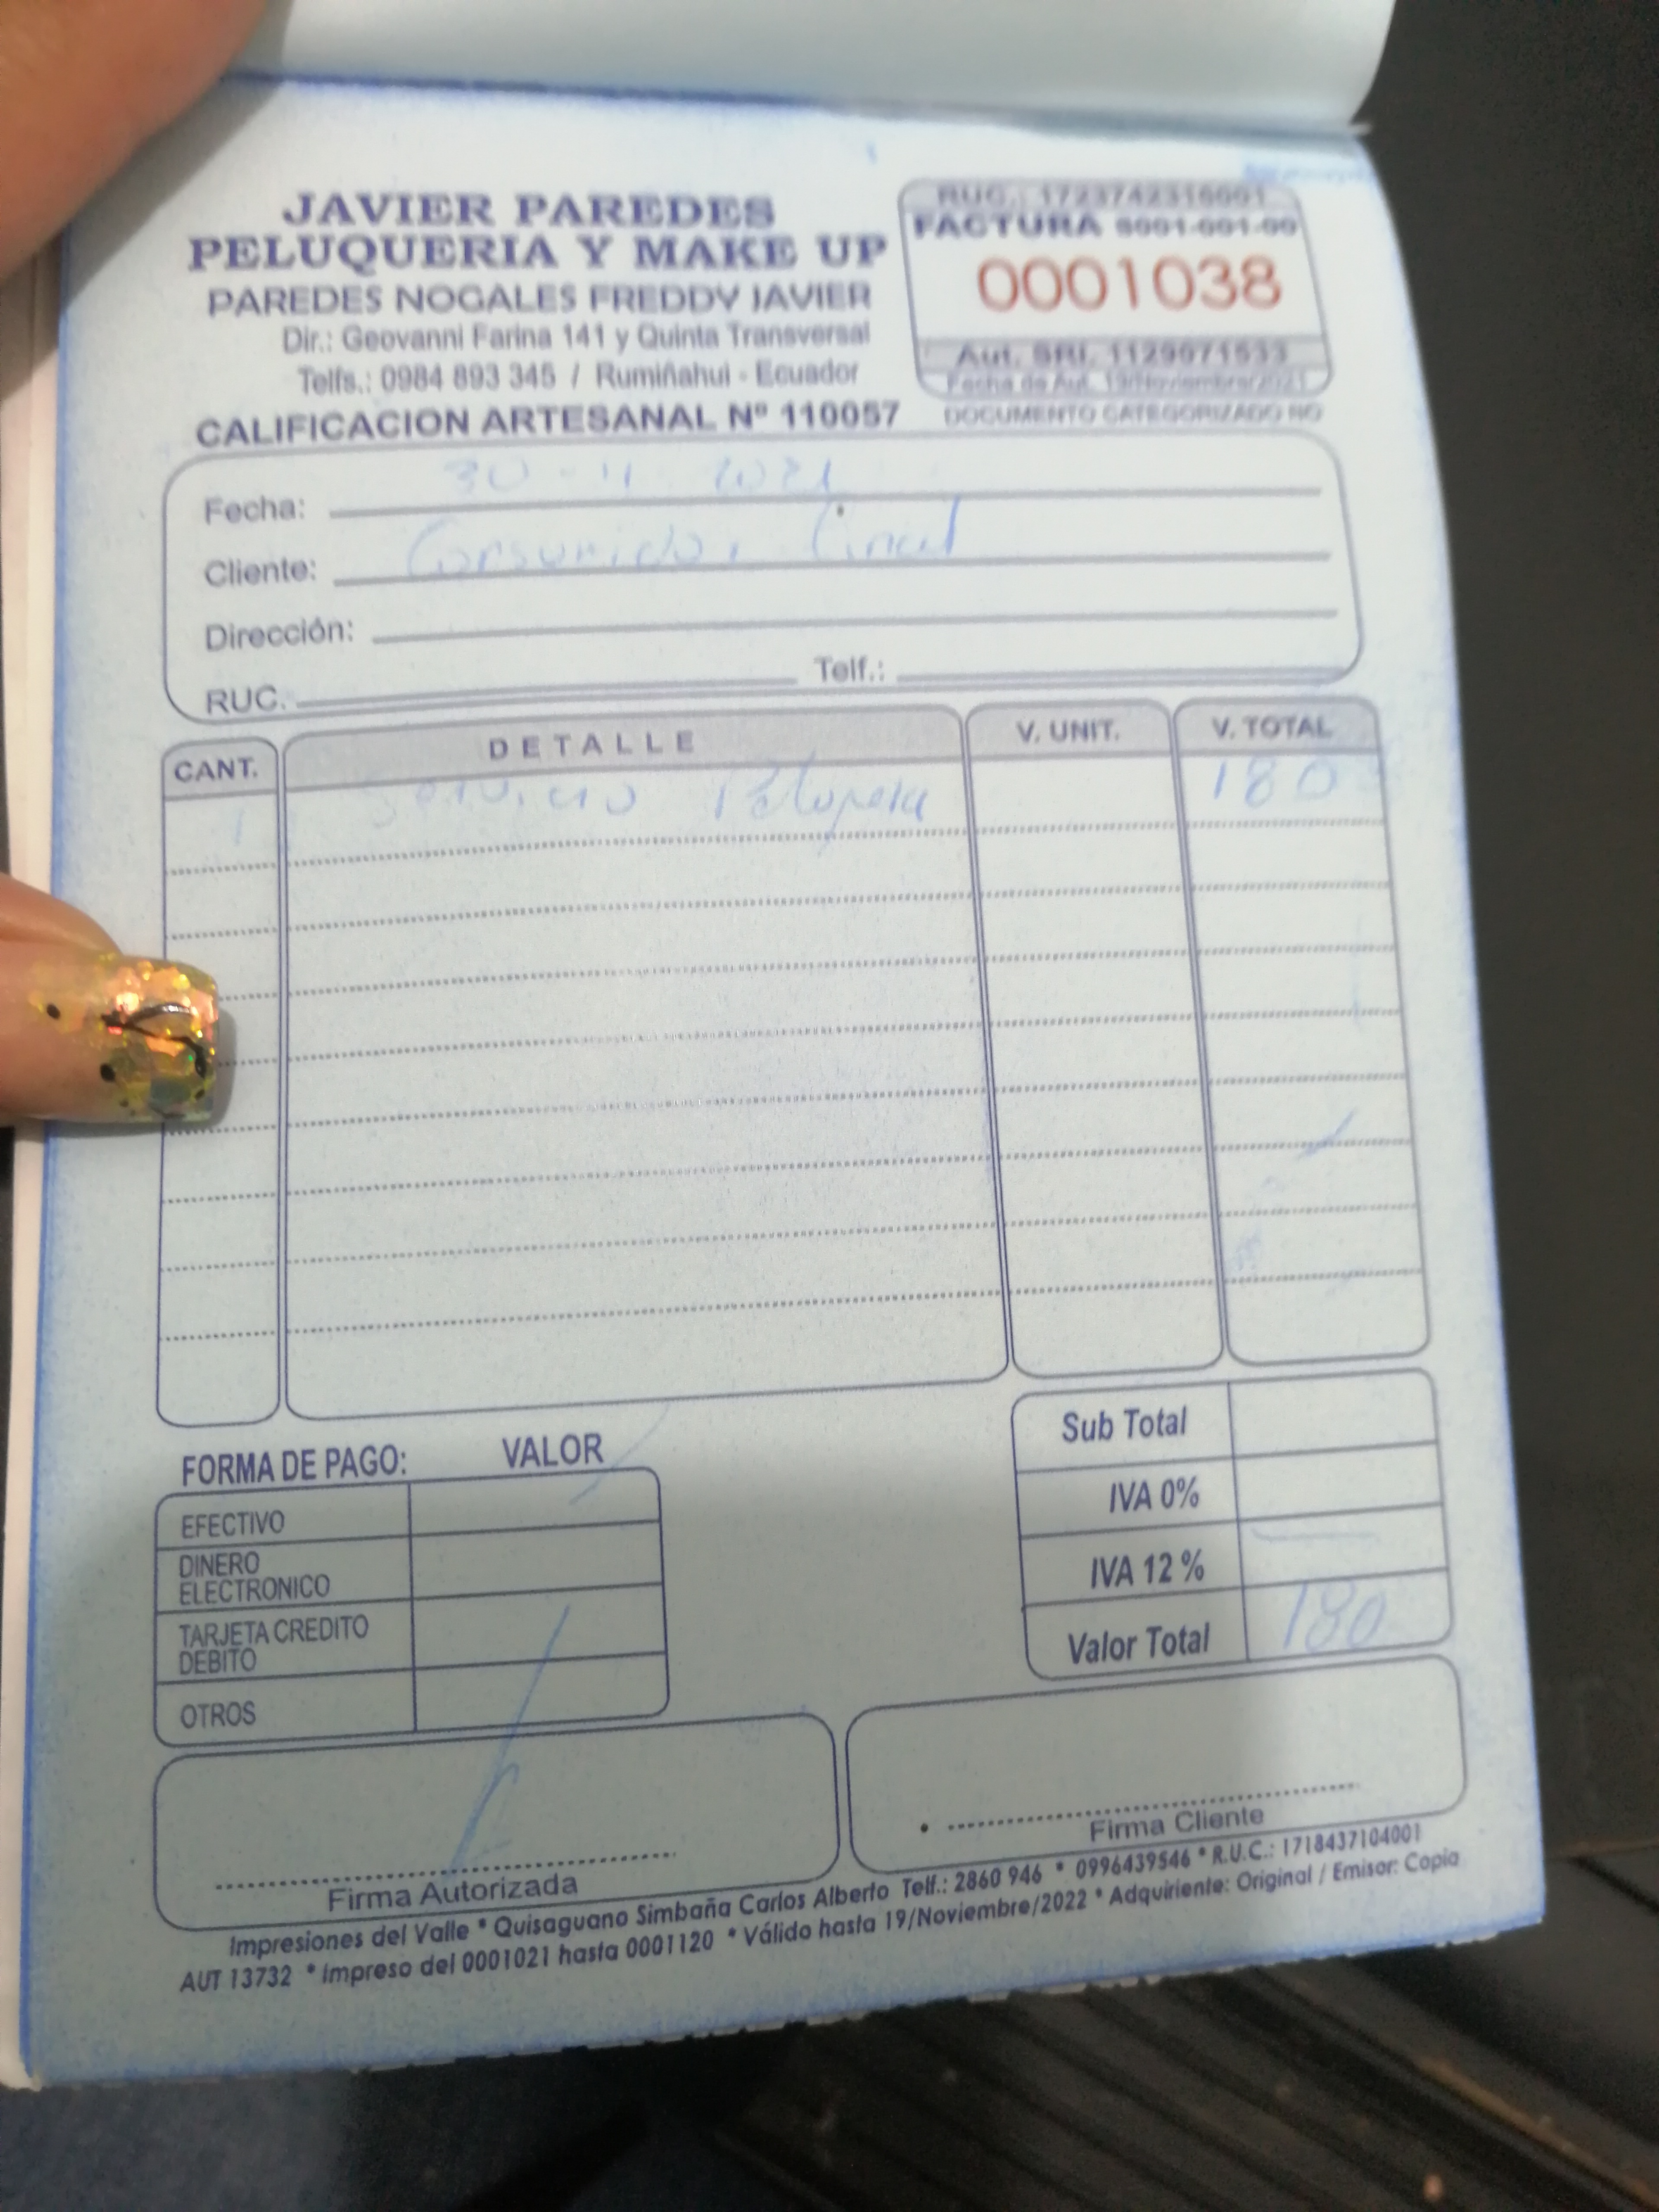 JAVIER PAREDES
PELUQUERIA Y MAKE UP
PAREDES NOGALES FREDDY JAVIER
Dir.: Geovanni Farina 141 y Quinta Transversal
Telfs.: 0984 893 345 / Rumiñahui - Ecuador
CALIFICACION ARTESANAL Nº 110057
RUC.: 1723742316001
FACTURA S001-001-00
0001038
Aut. SRI. 1129071533
Fecha de Aut. 19/Noviembre/2021
DOCUMENTO CATEGORIZADO NO
Fecha: 30 - 11 2021
Cliente: Consumidor Final
Dirección:
RUC. Telf.:
CANT. DETALLE V. UNIT. V. TOTAL
1 Servicio 180
FORMA DE PAGO: VALOR
EFECTIVO
DINERO ELECTRONICO
TARJETA CREDITO DEBITO
OTROS
Sub Total
IVA 0%
IVA 12 %
Valor Total 180
Firma Autorizada
Firma Cliente
Impresiones del Valle * Quisaguano Simbaña Carlos Alberto Telf.: 2860 946 * 0996439546 * R.U.C.: 1718437104001
AUT 13732 * Impreso del 0001021 hasta 0001120 * Válido hasta 19/Noviembre/2022 * Adquiriente: Original / Emisor: Copia